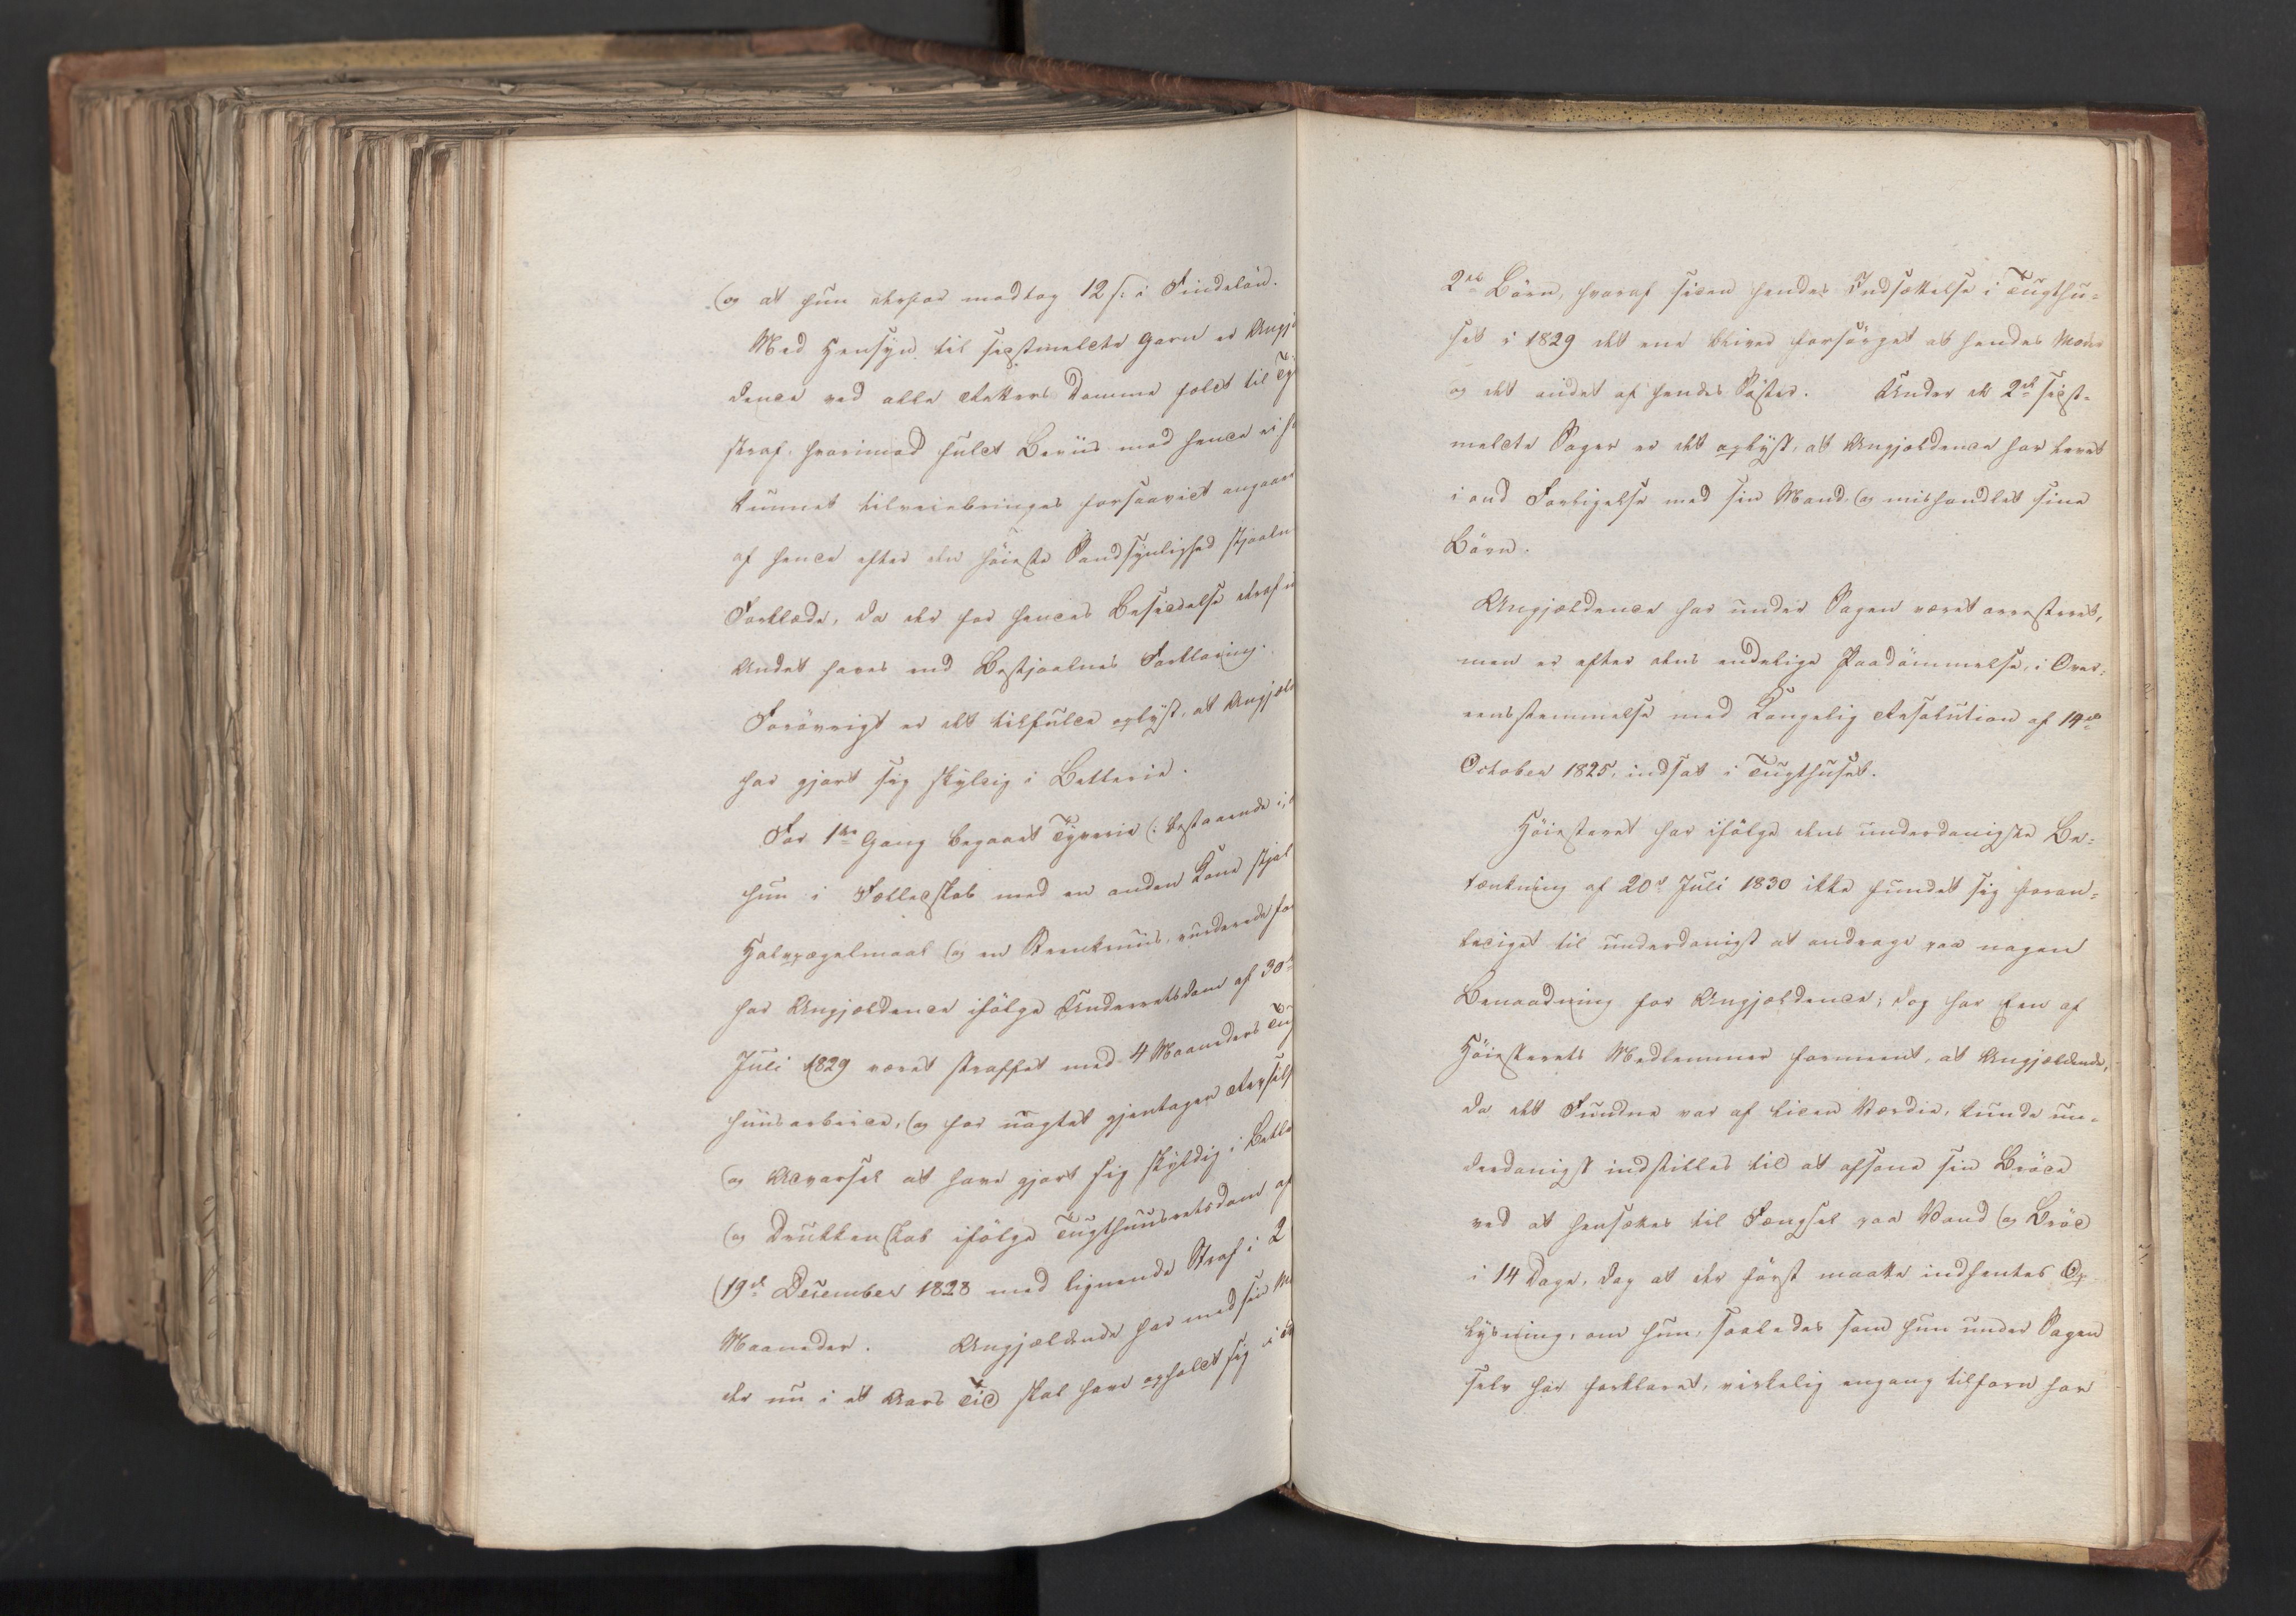 og at hun derfor modtog 12 s. i Findeløn.
Med Hensyn til sidstmeldte Garn er Angj
dende ved alle Retters Domme fældt til Ty
straf, hvorimod fuldt Beviis mod hende ei h
kunnet tilveiebringes forsaavidt angaae
af hende efter den høieste Sandsynlighed stjaaln
Forklæde, da der for hendes Besiddelse deraf ei
Andet haves end Bestjaalnes Forklaring.
Forøvrigt er det tilfulde oplyst, at Angjæl
har gjort sig skyldig i Betlerie.
For 1ste Gang begaaet Tyverie (: bestaaende i,
hun i Fælledskab med en anden Kone stjal
Halvpægelmaal og en Steenkruus, vurderede for
har Angjældende ifølge Underretsdom af 30te
Juli 1829 været straffet med 4 Maaneders Tug
huusarbeide, og for uagtet gjentagen Revsels
og Advarsel at have gjort sig skyldig i Betle
og Drukkenskab ifølge Tugthuusretsdom af
19de December 1828 med lignende Straf i 2
Maaneder. Angjældende har med sin M
der nu i et Aars Tid skal have opholdt sig i
2de Børn, hvoraf siden hendes Indsættelse i Tugthu-
set i 1829 det ene bliver forsørget af hendes Moder
og det andet af hendes Søster. Under de 2de sidst-
meldte Sager er det oplyst, at Angjældende har levet
i ond Forligelse med sin Mand og mishandlet sine
Børn.
Angjældende har under Sagen været arresteret,
men er efter dens endelige Paadømmelse, i Over-
eensstemmelse med Kongelig Resolution af 14de
October 1825, indsat i Tugthuset.
Høiesteret har ifølge dens underdanigste Be-
tænkning af 20de Juli 1830 ikke fundet sig foran-
lediget til underdanigst at andrage paa nogen
Benaadning for Angjældende; dog har Een af
Høiesterets Medlemmer formeent, at Angjældende,
da det Fundne var af liden Værdie, kunde un-
derdanigst indstilles til at afsone sin Brøde
ved at hensættes til Fængsel paa Vand og Brød
i 14 Dage, dog at der først maatte indhentes Op-
lysning, om hun, saaledes som hun under Sagen
selv har forklaret, virkelig engang tilforn har